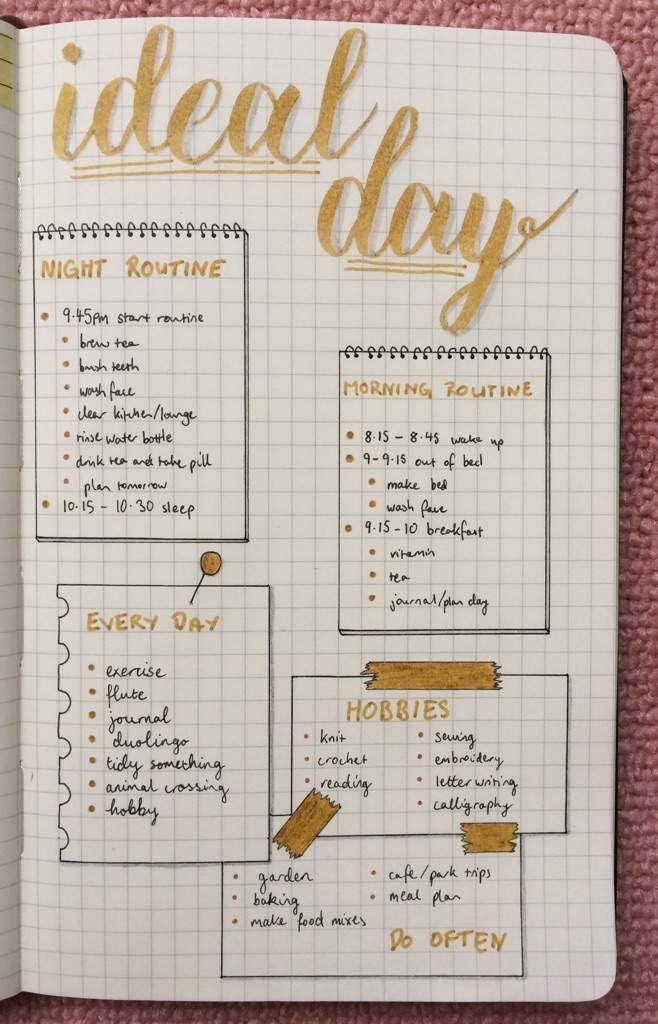 ideal
day
NIGHT ROUTINE
9.45pm start routine
brew tea
brush teeth
wash face
clear kitchen/lounge
rinse water bottle
drink tea and take pill
plan tomorrow
10.15 - 10.30 sleep
MORNING ROUTINE
8.15 - 8.45 wake up
9-9.15 out of bed
make bed
wash face
9.15-10 breakfast
vitamin
tea
journal/plan day
EVERY DAY
exercise
flute
journal
duolingo
tidy something
animal crossing
hobby
HOBBIES
knit
crochet
reading
sewing
embroidery
letter writing
calligraphy
garden
baking
make food mixes
cafe/park trips
meal plan
DO OFTEN